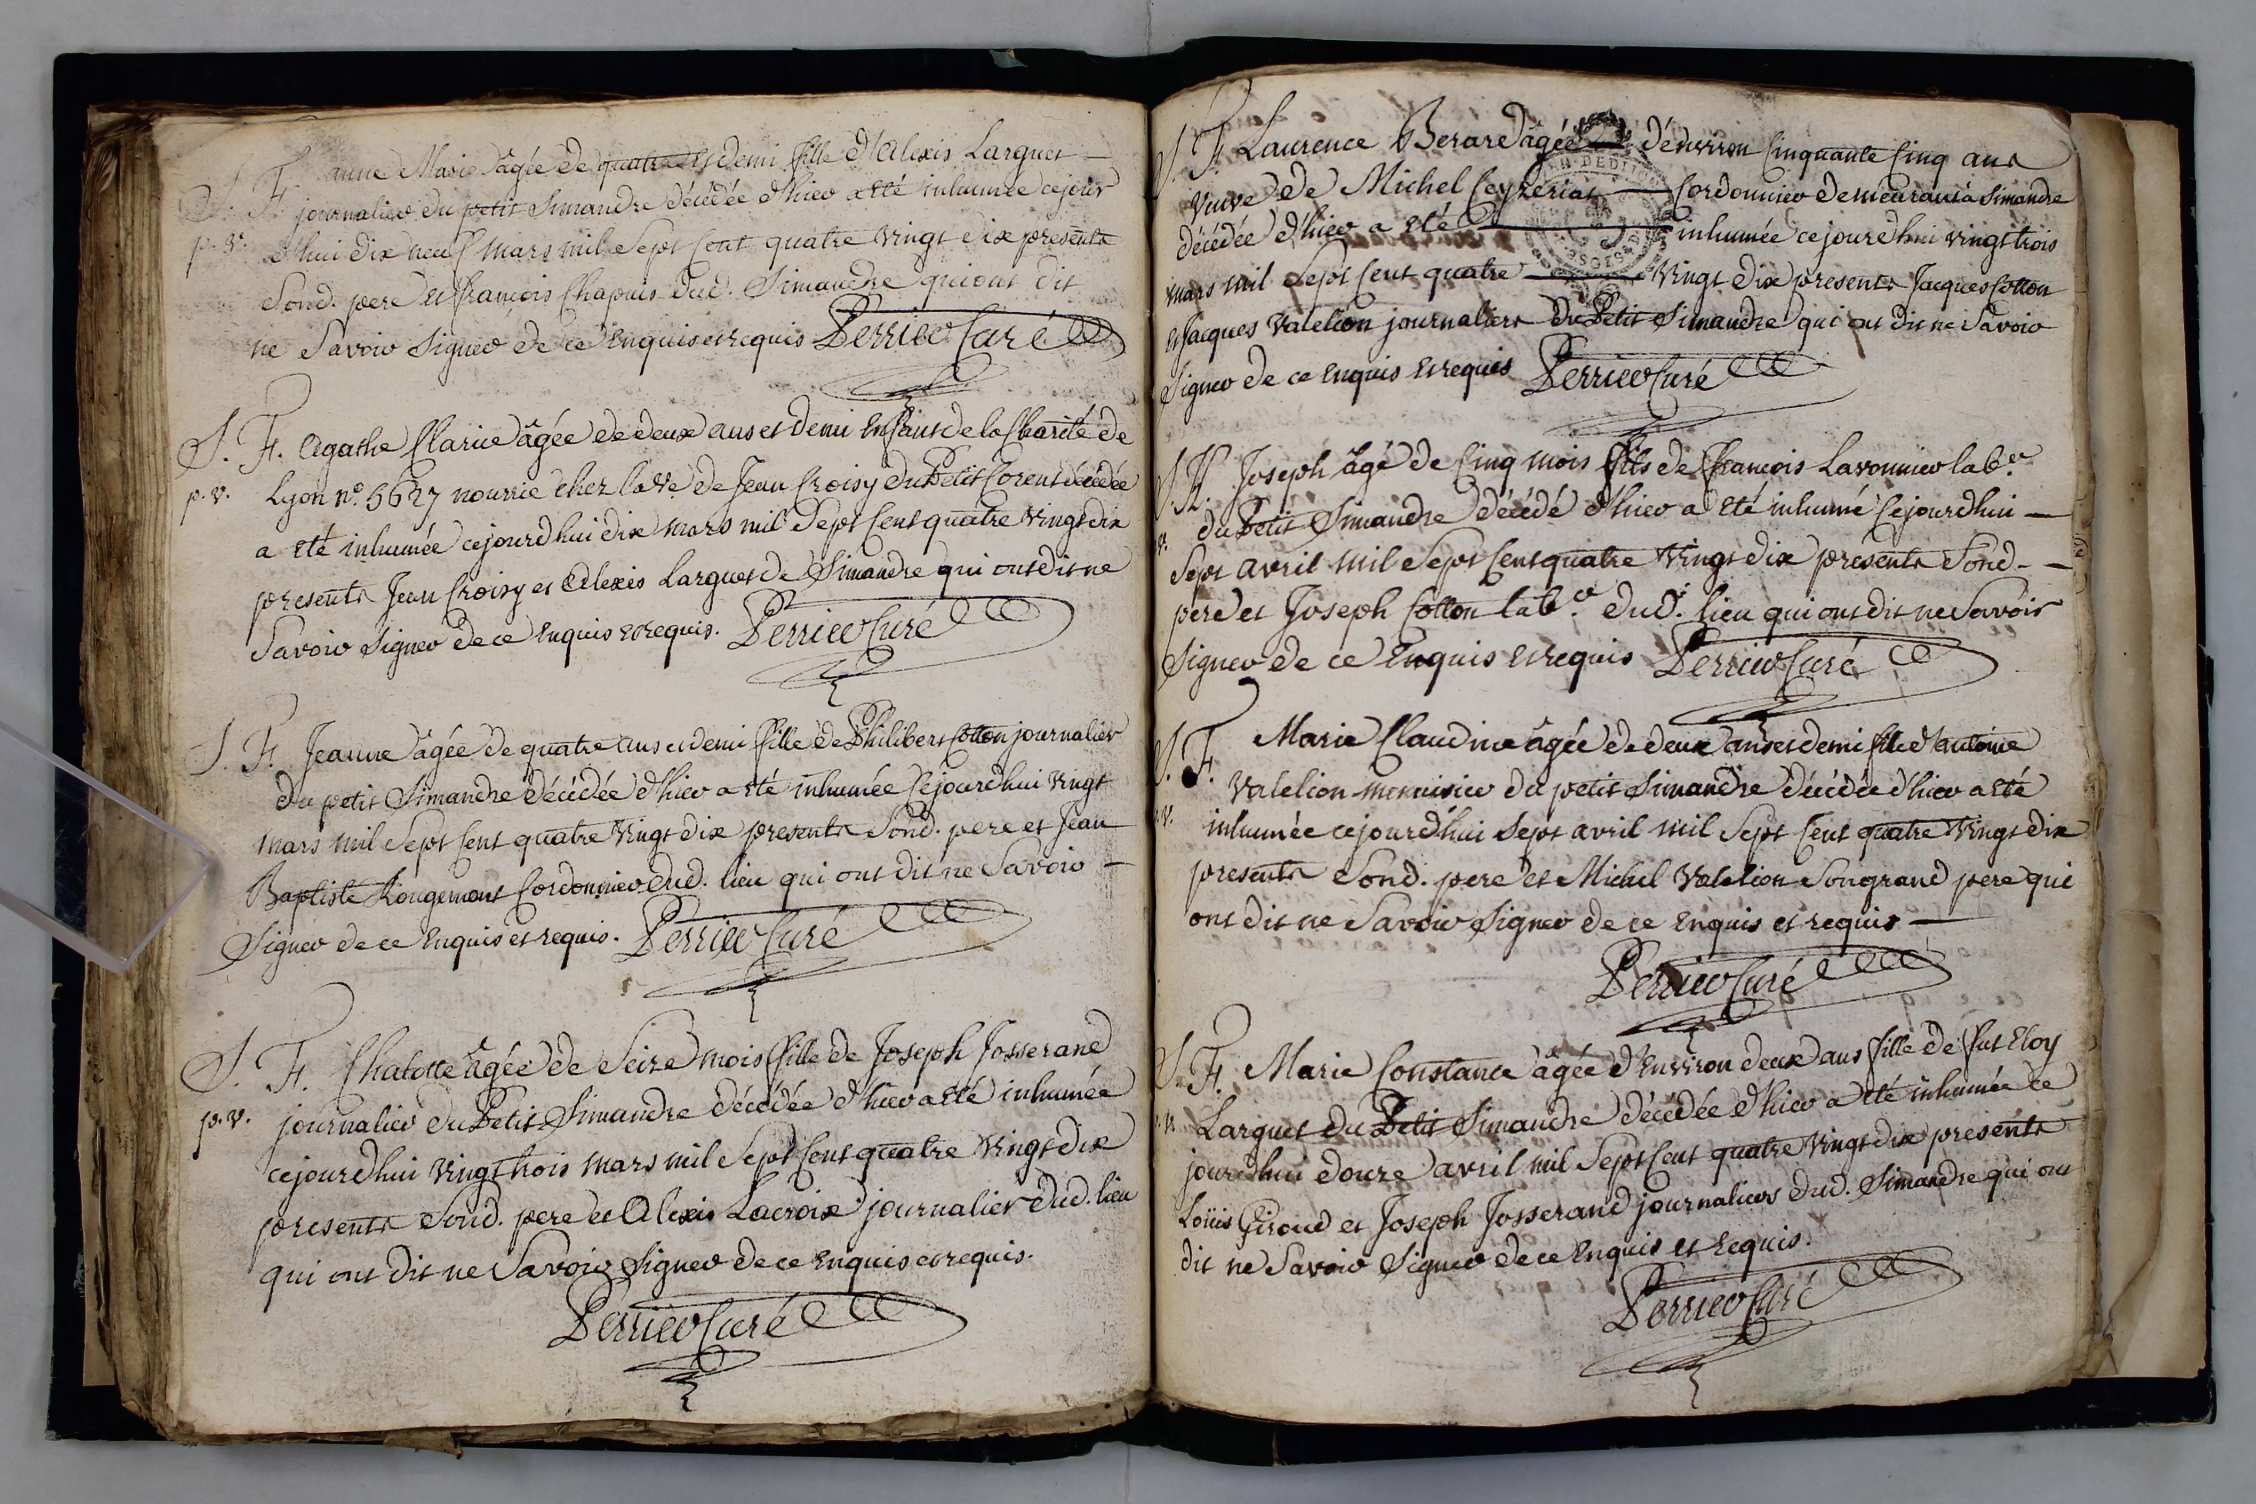 S. F. anne Marie âgée de quatre et demi fille d'Alexis Larguet —
journalier du petit Simandre décédée d'hier a été inhumée cejour
p. v. d'hui dix neuf mars mil Sept Cent quatre vingt dix presents
Sond. pere et françois Chapuis dud. Simandre qui ont dit
ne Savoir Signer de ce Enquis et requis Perrier Curé
S. F. Agathe Clarice âgée de deux ans et demi Enfant de la Charité de
p. v. Lyon n.º 5627 nourrie chez la Ve. de Jean Croisy du Petit Corent décédée
a été inhumée cejourdhui dix mars mil Sept Cent quatre vingt dix
presents Jean Croisy et Alexis Larguet de Simandre qui ont dit ne
Savoir Signer de ce Enquis et requis. Perrier Curé
S. F. Jeanne âgée de quatre ans et demi fille de Philibert Cotton journalier
du petit Simandre décédée d'hier a été inhumée Cejourdhui vingt
mars mil Sept Cent quatre vingt dix presents Sond. pere et Jean
Baptiste Rougemont Cordonnier dud. lieu qui ont dit ne Savoir —
Signer de ce Enquis et requis. Perrier Curé
S. F. Chalotte âgée de Seize mois fille de Joseph Josserand
p. v. journalier du Petit Simandre décédée d'hier a été inhumée
cejourdhui vingt trois mars mil Sept Cent quatre vingt dix
presents Sond. pere et Alexis Lacroix journalier dud. lieu
qui ont dit ne Savoir Signer de ce Enquis et requis.
Perrier Curé
S. F. Laurence Berard âgée d'environ Cinquante Cinq ans
Veuve de Michel Ceyzeriat — Cordonnier demeurant à Simandre
décédée d'hier a été — inhumée cejourdhui vingt trois
mars mil Sept Cent quatre — vingt dix presents Jacques Cotton
et Jacques Valelion journaliers du Petit Simandre qui ont dit ne Savoir
Signer de ce Enquis et requis Perrier Curé
S. H. Joseph âgé de Cinq mois fils de françois Lavonnier lab.er
v. du Petit Simandre décédé d'hier a été inhumé Cejourdhui —
Sept avril mil Sept Cent quatre vingt dix presents Sond. —
pere et Joseph Cotton lab.er dud. lieu qui ont dit ne Savoir
Signer de ce Enquis et requis Perrier Curé
S. F. Marie Claudine âgée de deux ans et demi fille d'antoine
Valelion menuisier du petit Simandre décédée d'hier a été
p. v. inhumée cejourd'hui Sept avril mil Sept Cent quatre vingt dix
presents Sond. pere et Michel Valelion Son grand pere qui
ont dit ne Savoir Signer de ce Enquis et requis —
Perrier Curé
S. F. Marie Constance âgée d'Environ deux ans fille de fut Eloy
p. v. Larguet du Petit Simandre décédée d'hier a été inhumée ce
jourdhui douze avril mil Sept Cent quatre vingt dix presents
Loüis Giroud et Joseph Josserand journaliers dud. Simandre qui ont
dit ne Savoir Signer de ce Enquis et requis.
Perrier Curé